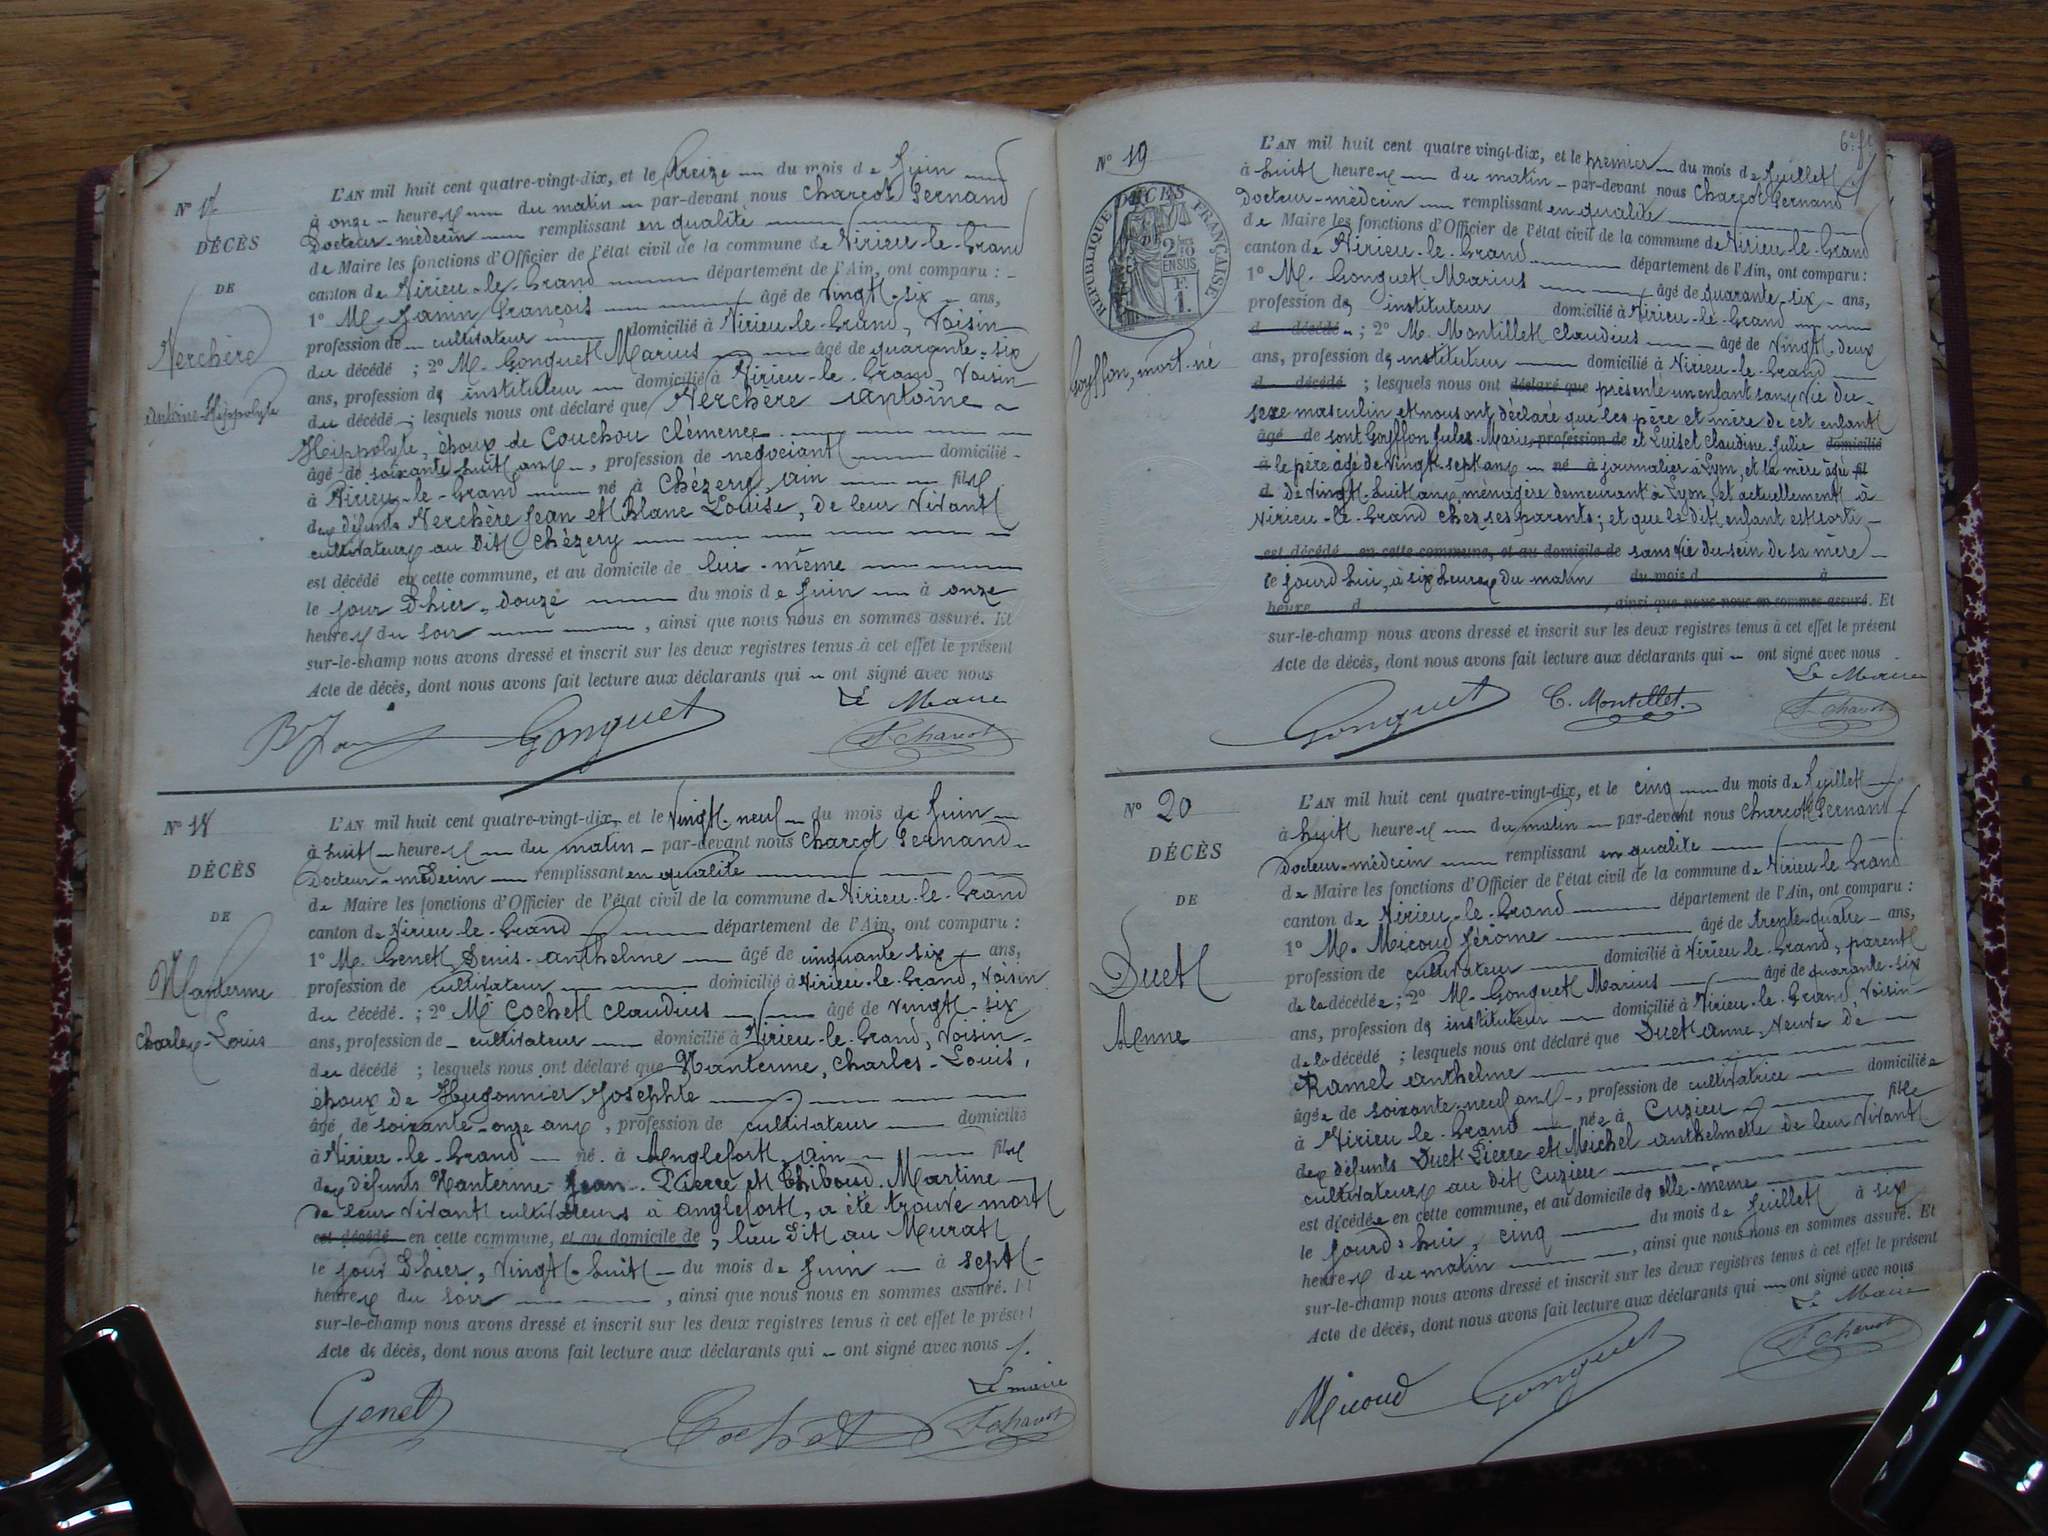 N° 17
DÉCÈS
DE
Verchère
Antoine-Hippolyte
L'AN mil huit cent quatre-vingt-dix, et le treize du mois de Juin
à onze heures du matin par-devant nous Charcot Fernand
Docteur-médecin remplissant en qualité
de Maire les fonctions d'Officier de l'état civil de la commune de Virieu-le-Grand
canton de Virieu-le-Grand département de l'Ain, ont comparu :
1° M. Janin François âgé de vingt-six ans,
profession de cultivateur domicilié à Virieu-le-Grand, voisin
du décédé ; 2° M. Gonguet Marius âgé de quarante-six
ans, profession de instituteur domicilié à Virieu-le-Grand, voisin
du décédé ; lesquels nous ont déclaré que Verchère Antoine
Hippolyte, époux de Couchou Clémence
âgé de soixante huit ans, profession de négociant domicilié
à Virieu-le-Grand né à Chézery, Ain fils
des défunts Verchère Jean et Blanc Louise, de leur vivant
cultivateurs au dit Chézery
est décédé en cette commune, et au domicile de lui-même
le jour d'hier, douze du mois de Juin à onze
heures du soir, ainsi que nous nous en sommes assuré. Et
sur-le-champ nous avons dressé et inscrit sur les deux registres tenus à cet effet le présent
Acte de décès, dont nous avons fait lecture aux déclarants qui ont signé avec nous
Le Maire
Gonguet F. Charcot
N° 18
DÉCÈS
DE
Nanterme
Charles-Louis
L'AN mil huit cent quatre-vingt-dix, et le vingt-neuf du mois de Juin
à huit heures du matin par-devant nous Charcot Fernand
Docteur-médecin remplissant en qualité
de Maire les fonctions d'Officier de l'état civil de la commune de Virieu-le-Grand
canton de Virieu-le-Grand département de l'Ain, ont comparu :
1° M. Genet Denis-Anthelme âgé de cinquante six ans,
profession de cultivateur domicilié à Virieu-le-Grand, voisin
du décédé. ; 2° M. Cochet Claudius âgé de vingt-six
ans, profession de cultivateur domicilié à Virieu-le-Grand, voisin
du décédé ; lesquels nous ont déclaré que Nanterme, Charles-Louis,
époux de Hugonnier Josephte
âgé de soixante-onze ans, profession de cultivateur domicilié
à Virieu-le-Grand né à Anglefort, Ain fils
des défunts Nanterme Jean-Pierre et Thiboud Martine
de leur vivant cultivateurs à Anglefort, a été trouvé mort
est décédé en cette commune, et au domicile de, lieu dit au Murat
le jour d'hier, vingt-huit du mois de Juin à sept
heures du soir, ainsi que nous nous en sommes assuré. Et
sur-le-champ nous avons dressé et inscrit sur les deux registres tenus à cet effet le présent
Acte de décès, dont nous avons fait lecture aux déclarants qui ont signé avec nous
Le maire
Genet Cochet F. Charcot
6e ft
N° 19
DÉCÈS
RÉPUBLIQUE FRANÇAISE
2/10
EN SUS
1F.
Goyffon, mort-né
L'AN mil huit cent quatre vingt-dix, et le premier du mois de Juillet
à huit heures du matin par-devant nous Charcot Fernand
Docteur-médecin remplissant en qualité
de Maire les fonctions d'Officier de l'état civil de la commune de Virieu-le-Grand
canton de Virieu-le-Grand département de l'Ain, ont comparu :
1° M. Gonguet Marius âgé de quarante-six ans,
profession de instituteur domicilié à Virieu-le-Grand
d décédé ; 2° M. Montillet Claudius âgé de vingt-deux
ans, profession de instituteur domicilié à Virieu-le-Grand
d décédé ; lesquels nous ont déclaré que présenté un enfant sans vie du
sexe masculin et nous ont déclaré que les père et mère de cet enfant
âgé de sont Goyffon Jules-Marie, profession de et Luiset Claudine Julie domicilié
à le père âgé de vingt-sept ans né à journalier à Lyon, et la mère âgée fil
d de vingt-huit ans, ménagère demeurant à Lyon, et actuellement à
Virieu-le-Grand chez ses parents ; et que le dit enfant est sorti
est décédé en cette commune, et au domicile de sans vie du sein de sa mère
le jourd'hui, à six heures du matin du mois d à
heure d , ainsi que nous nous en sommes assuré. Et
sur-le-champ nous avons dressé et inscrit sur les deux registres tenus à cet effet le présent
Acte de décès, dont nous avons fait lecture aux déclarants qui ont signé avec nous
Le Maire
Gonguet C. Montillet. F. Charcot
N° 20
DÉCÈS
DE
Duet
Anne
L'AN mil huit cent quatre-vingt-dix, et le cinq du mois de Juillet
à huit heures du matin par-devant nous Charcot Fernand
Docteur-médecin remplissant en qualité
de Maire les fonctions d'Officier de l'état civil de la commune de Virieu le Grand
canton de Virieu-le-Grand département de l'Ain, ont comparu :
1° M. Micoud Jérôme âgé de trente-quatre ans,
profession de cultivateur domicilié à Virieu-le-Grand, parent
de la décédée ; 2° M. Gonguet Marius âgé de quarante-six
ans, profession de instituteur domicilié à Virieu-le-Grand, voisin
de la décédé ; lesquels nous ont déclaré que Duet Anne, veuve de
Ramel Anthelme
âgée de soixante-neuf ans, profession de cultivatrice domiciliée
à Virieu le Grand née à Cuzieu fille
des défunts Duet Pierre et Michel Anthelmette de leur vivant
cultivateurs au dit Cuzieu
est décédée en cette commune, et au domicile de elle-même
le jourd'hui, cinq du mois de Juillet à six
heures du matin, ainsi que nous nous en sommes assuré. Et
sur-le-champ nous avons dressé et inscrit sur les deux registres tenus à cet effet le présent
Acte de décès, dont nous avons fait lecture aux déclarants qui ont signé avec nous
Le Maire
Micoud Gonguet F. Charcot